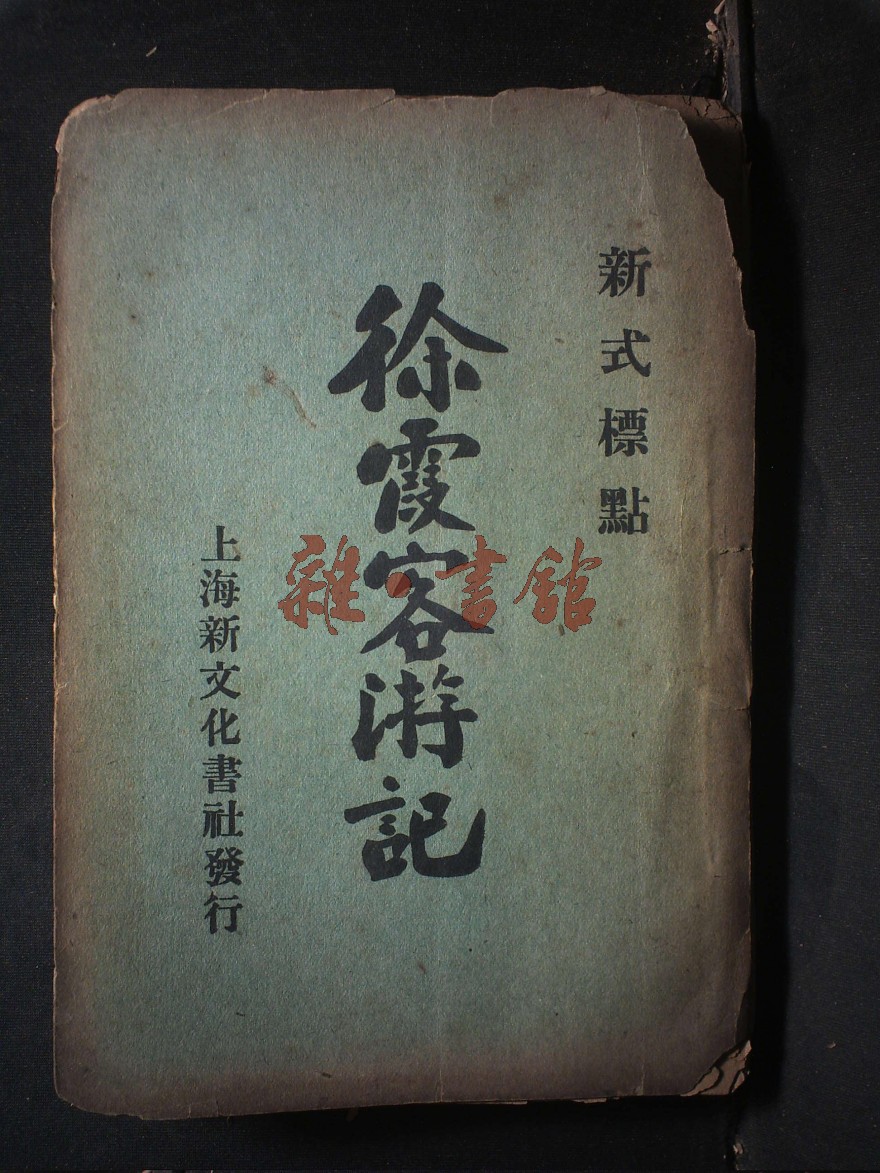 新式標點
徐霞客游記
上海新文化書社發行
雜·書館